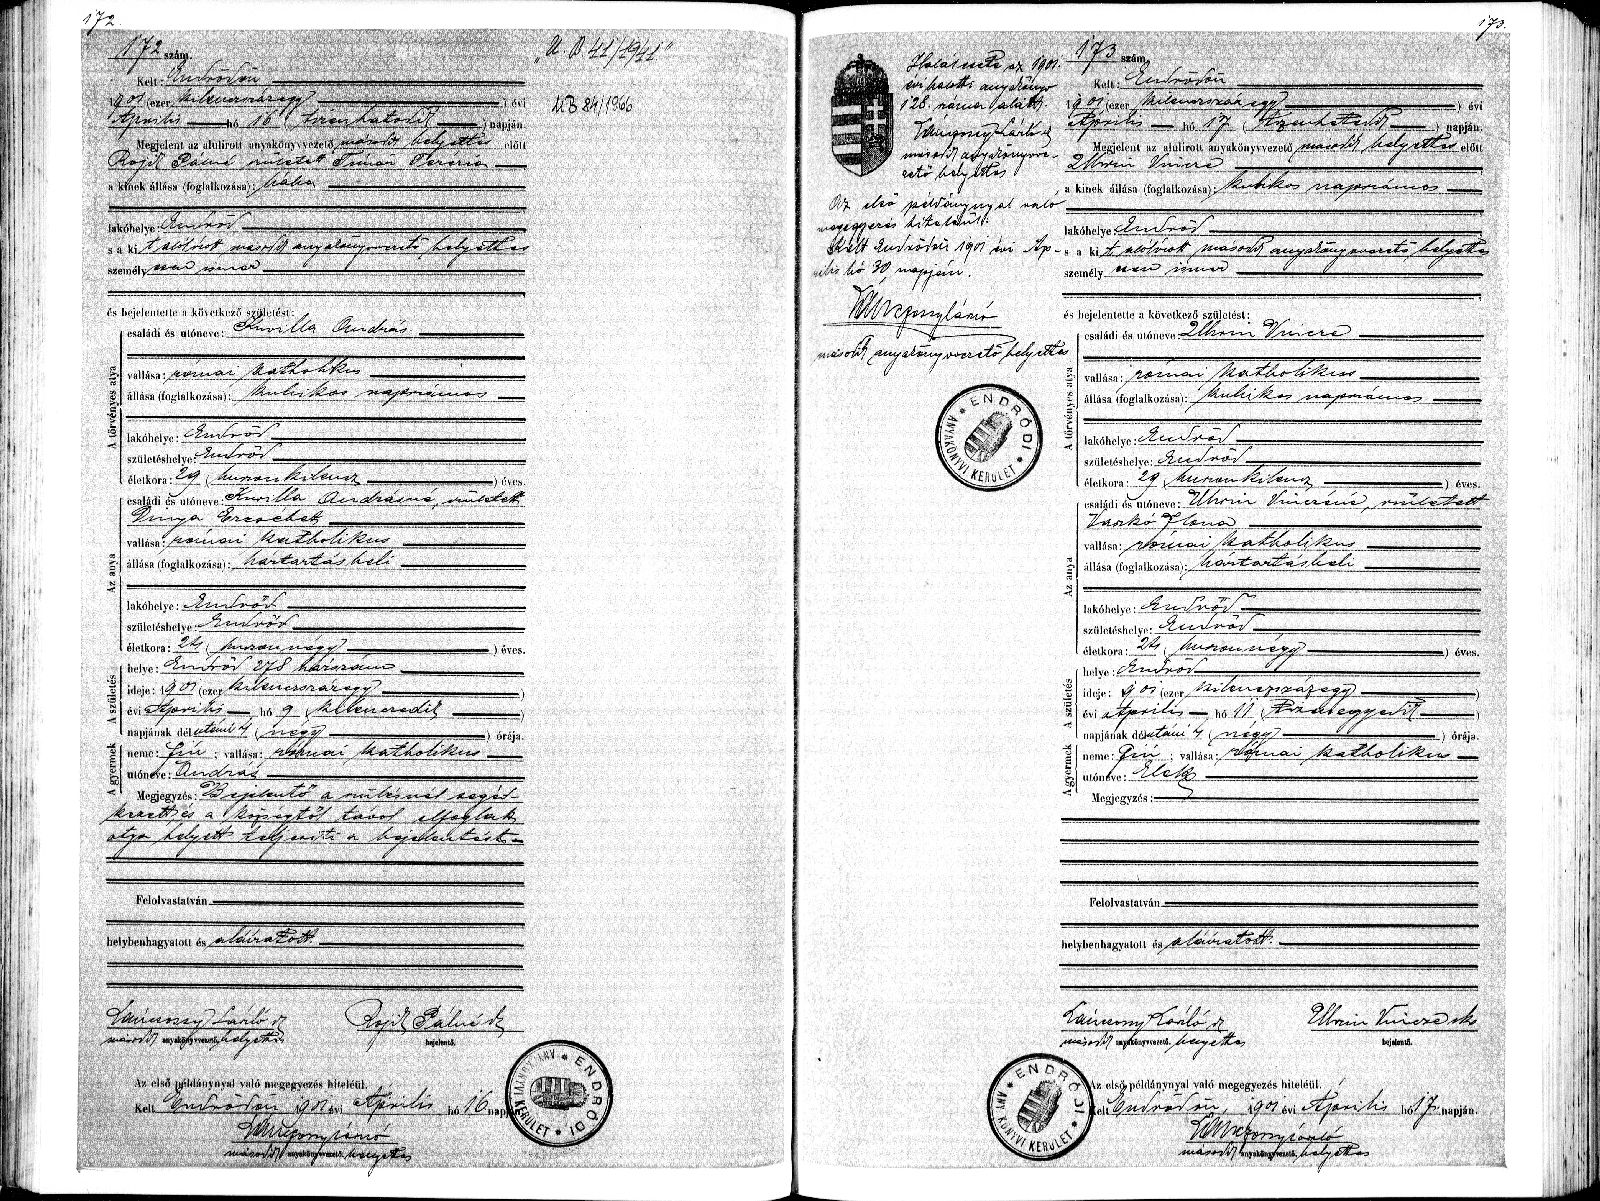 172.
172 szám.
"U. B 41/1941"
Kelt: Endrődön
UB 84/1966
1901 (ezer kilenczszázegy) évi
Április hó 16 (tizenhatodik) napján.
Megjelent az alulirott anyakönyvvezető második helyettes előtt
Pálné született Timár Terézia
a kinek állása (foglalkozása): bába
lakóhelye: Endrőd
s a kit alólirott második anyakönyvvezető helyettes
személyesen ismer
és bejelentette a következő születést:
A törvényes atya
családi és utóneve: Kurilla András
vallása: római katholikus
állása (foglalkozása): kubikos napszámos
lakóhelye: Endrőd
születéshelye: Endrőd
életkora: 29 (huszonkilencz) éves.
Az anya
családi és utóneve: Kurilla Andrásné, született
Dinya Erzsébet
vallása: római katholikus
állása (foglalkozása): háztartásbeli
lakóhelye: Endrőd
születéshelye: Endrőd
életkora: 24 (huszonnégy) éves.
A születés
helye: Endrőd 278 házszám
ideje: 1901 (ezer kilenczszázegy)
évi Április hó 9 (kilenczedik)
napjának délutáni 4 (négy) órája.
A gyermek
neme: fiú; vallása: római katholikus
utóneve: András
Megjegyzés: Bejelentő a szülésnél segéd
kezett és a községtől távol elfoglalt
atya helyett teljesíti a bejelentést
Felolvastatván
helybenhagyatott és aláiratott.
László
Pálné
második anyakönyvvezető, helyettes
bejelentő.
Az első példánynyal való megegyezés hiteléül.
Kelt Endrődön 1901 évi Április hó 16 napján
második anyakönyvvezető, helyettes
ENDRŐDI ANYAKÖNYVI KERÜLET
173.
Halálesete az 1901.
évi halotti anyakönyv
128. száma alatt.
László
második anyakönyvve-
zető helyettes
Az első példánynyal való
megegyezés hiteléül:
Kelt Endrődön 1901 évi Áp-
rilis hó 30 napján.
második anyakönyvvezető helyettes
ENDRŐDI ANYAKÖNYVI KERÜLET
173 szám.
Kelt: Endrődön
1901 (ezer kilenczszázegy) évi
Április hó 17 (tizenhetedik) napján.
Megjelent az alulirott anyakönyvvezető második helyettes előtt
Uhrin Vincze
a kinek állása (foglalkozása): kubikos napszámos
lakóhelye: Endrőd
s a kit alólirott második anyakönyvvezető helyettes
személyesen ismer
és bejelentette a következő születést:
A törvényes atya
családi és utóneve: Uhrin Vincze
vallása: római katholikus
állása (foglalkozása): kubikos napszámos
lakóhelye: Endrőd
születéshelye: Endrőd
életkora: 29 (huszonkilencz) éves.
Az anya
családi és utóneve: Uhrin Vinczéné, született
Varkó Ilona
vallása: római katholikus
állása (foglalkozása): háztartásbeli
lakóhelye: Endrőd
születéshelye: Endrőd
életkora: 24 (huszonnégy) éves.
A születés
helye: Endrőd
ideje: 1901 (ezer kilenczszázegy)
évi Április hó 11 (tizenegyedik)
napjának délutáni 4 (négy) órája.
A gyermek
neme: fiú; vallása: római katholikus
utóneve: Elek
Megjegyzés:
Felolvastatván
helybenhagyatott és aláiratott.
László
Uhrin Vincze sk
második anyakönyvvezető, helyettes
bejelentő.
Az első példánynyal való megegyezés hiteléül.
Kelt Endrődön, 1901 évi Április hó 17 napján.
második anyakönyvvezető, helyettes
ENDRŐDI ANYAKÖNYVI KERÜLET